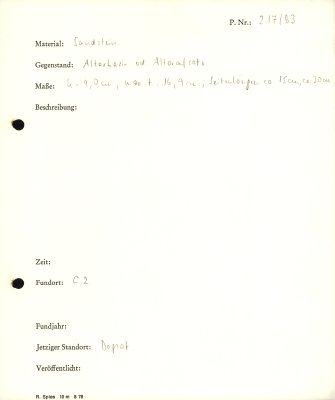 P. Nr.: 217/83
Material: Sandstein
Gegenstand: Altarbasis od Altaraufsatz
Maße: h. 9,0 cm, max t. 16,9 cm; Seitenlängen ca 15 cm, ca 30 cm
Beschreibung:
Zeit:
Fundort: C 2
Fundjahr:
Jetziger Standort: Depot
Veröffentlicht:
R. Spies 10 m 8 78